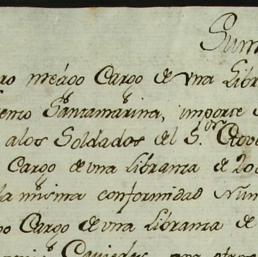 Sum
ro mẽdo Cargo de vna Libr
iento Santamarina, importe
alos Soldados del S.ᵒʳ
Cargo de vna libranza de 200
la misma conformidad Num
o Cargo de vna libranza de
Caviedes, una otra